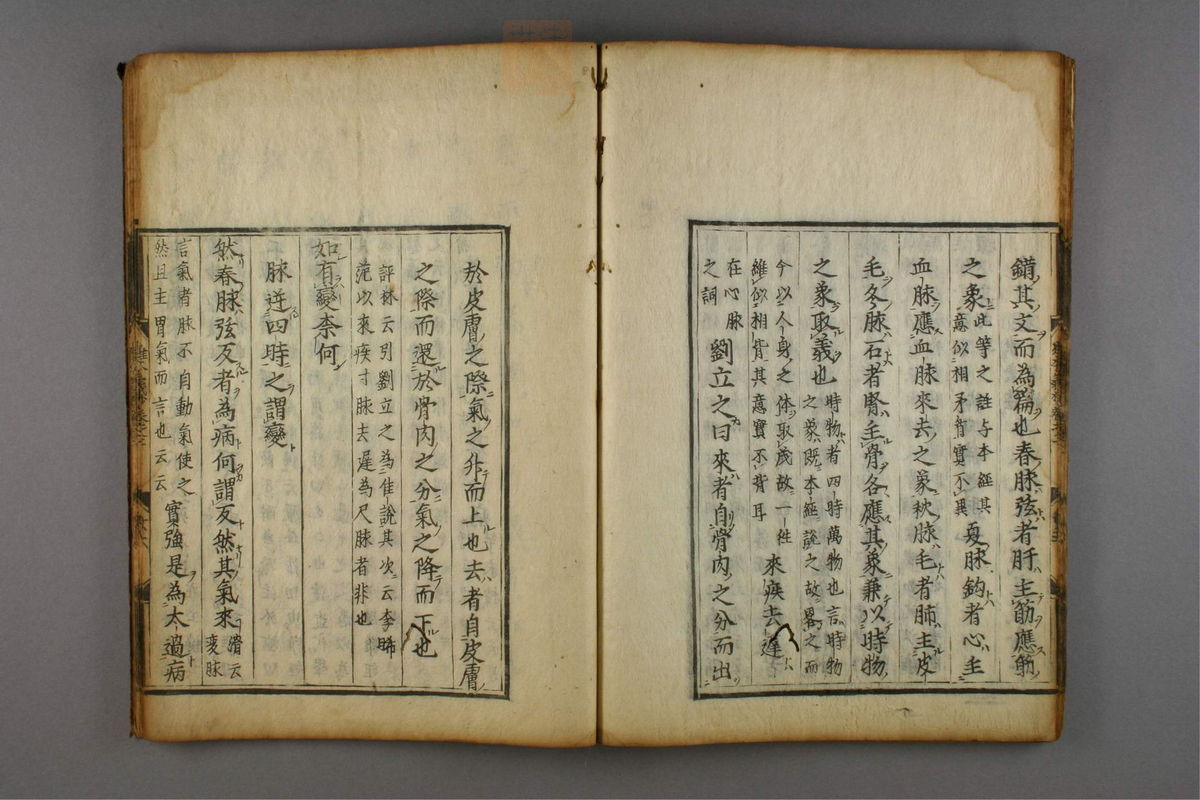 錯其文而為篇也春脉弦者肝主筋應筋
之象此等之註与本經其
意似相矛背實不異夏脉鈎者心主
血脉應血脉來去之象秋脉毛者肺主皮
毛冬脉石者腎主骨各應其象兼以時物
之象取義也時物者四時萬物也言時物
之象既本經說之故畧之而
今以人身之体取茂故一往
雖似相背其意實不背耳來疾去遲
在心脉
之詞劉立之曰來者自骨肉之分而出
於皮膚之際氣之升而上也去者自皮膚
之際而還於骨肉之分氣之降而下也
評林云引劉立之為佳說其次云李晞
范以來疾寸脉去遲為尺脉者非也
如有變奈何
脉逆四時之謂變
然春脉弦反者為病何謂反然其氣來滑云
変脉
言氣者脉不自動氣使之
然且主胃氣而言也云云實強是為太過病